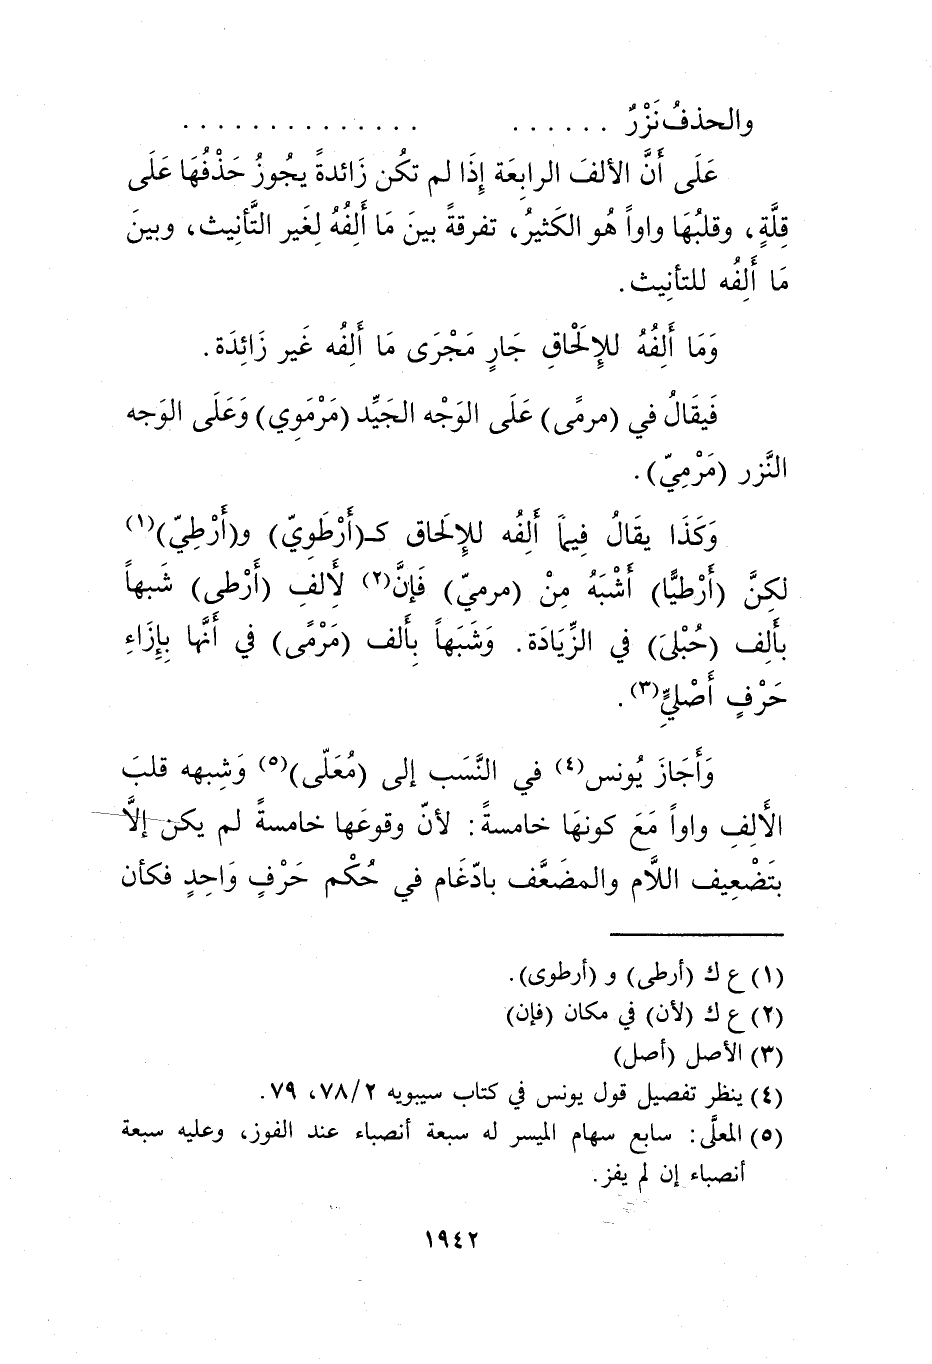 والحذفُ نَزْرٌ . . . . . . . . . . . . . . . . . . . .
عَلَى أَنَّ الألفَ الرابعَة إِذَا لم تكُن زَائدةً يجُوزُ حَذْفُهَا عَلَى
قِلَّةٍ، وقلبُهَا واواً هُو الكَثيرُ، تفرقةً بينَ مَا أَلِفُهُ لِغَير التَّأنيث، وبينَ
مَا أَلِفُه للتأنِيث.
وَمَا أَلِفُهُ للإِلْحَاقِ جَارٍ مَجْرَى مَا ألِفُه غَير زَائِدَة.
فَيقَالُ في (مرمًى) عَلَى الوَجْه الجَيِّد (مَرْمَوِي) وَعَلَى الوَجه
النَّزر (مَرْمِيّ).
وَكَذَا يقَالُ فِيمَا أَلِفُه للإِلحَاق كـ(أَرْطَوِيّ) و(أَرْطِيّ)(١)
لكِنَّ (أَرْطيًّا) أَشْبَهُ مِنْ (مرميّ) فَإِنَّ(٢) لأَلفِ (أَرْطى) شَبهاً
بأَلِف (حُبْلىَ) في الزِّيَادَة. وَشَبَهاً بِأَلف (مَرْمًى) في أَنَّها بِإِزَاءِ
حَرْفٍ أَصْليٍّ(٣).
وَأَجَازَ يُونس(٤) في النَّسَب إلى (مُعَلّى)(٥) وَشِبهه قلبَ
الأَلِفِ واواً مَعَ كونهَا خامسةً: لأنّ وقوعَها خامسةً لم يكن إلَّا
بتَضْعِيف اللَّام والمضَعَّف بادّغَام في حُكْم حَرْفٍ وَاحِدٍ فكأن
(١) ع ك (أرطى) و (أرطوى).
(٢) ع ك (لأن) في مكان (فإن)
(٣) الأصل (أصل)
(٤) ينظر تفصيل قول يونس في كتاب سيبويه ٢/ ٧٨، ٧٩.
(٥) المعلَّى: سابع سهام الميسر له سبعة أنصباء عند الفوز، وعليه سبعة
أنصباء إن لم يفز.
١٩٤٢